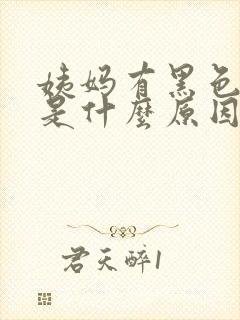 姨妈有黑色
是什麼原因
君天醉1